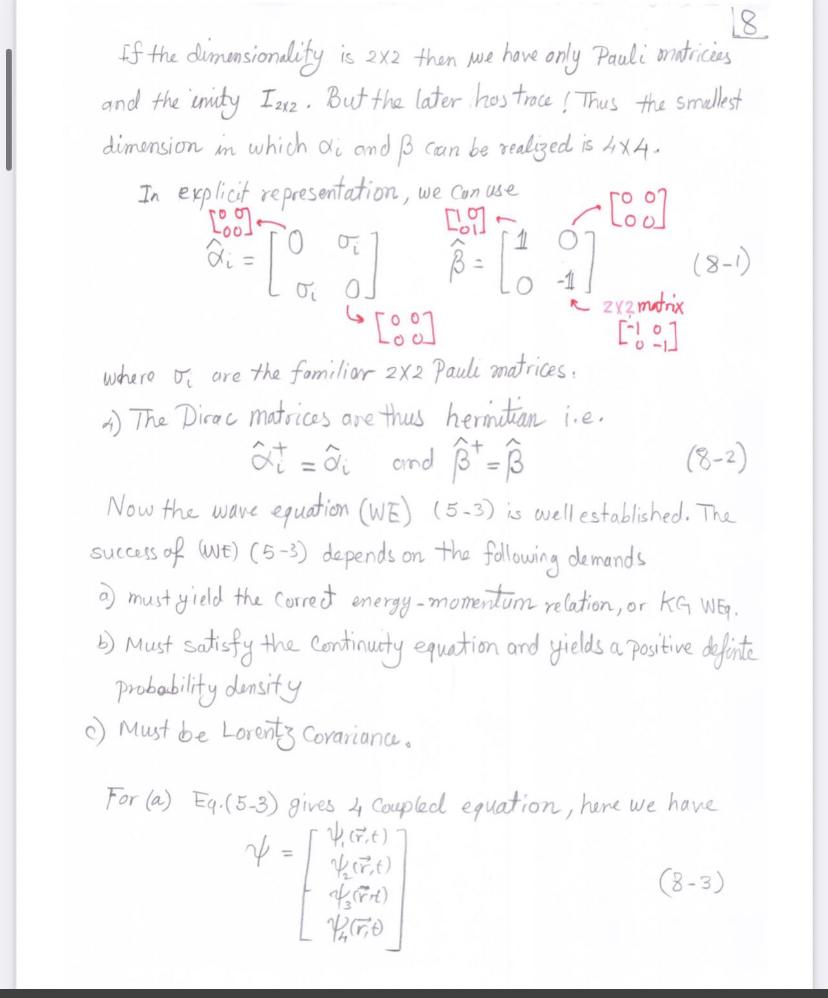 8
If the dimensionality is 2x2 then we have only Pauli matricies
and the unity I₂ₓ₂. But the later has trace! Thus the smallest
dimension in which αᵢ and β can be realized is 4x4.
In explicit representation, we can use
[0 0; 0 0] ← [1 0; 0 1] ← → [0 0; 0 0]
α̂ᵢ = [0 σᵢ; σᵢ 0] β̂ = [1 0; 0 -1] (8-1)
↳ [0 0; 0 0] ← 2x2 matrix
[-1 0; 0 -1]
where σᵢ are the familiar 2x2 Pauli matrices.
4) The Dirac matrices are thus hermitian i.e.
α̂ᵢ⁺ = α̂ᵢ and β̂⁺ = β̂ (8-2)
Now the wave equation (WE) (5-3) is well established. The
success of (WE) (5-3) depends on the following demands
a) must yield the correct energy-momentum relation, or KG WEq.
b) Must satisfy the Continuity equation and yields a positive definte
probability density
c) Must be Lorentz Covariance.
For (a) Eq.(5-3) gives 4 Coupled equation, here we have
ψ = [ψ₁(r⃗,t); ψ₂(r⃗,t); ψ₃(r⃗,t); ψ₄(r⃗,t)] (8-3)